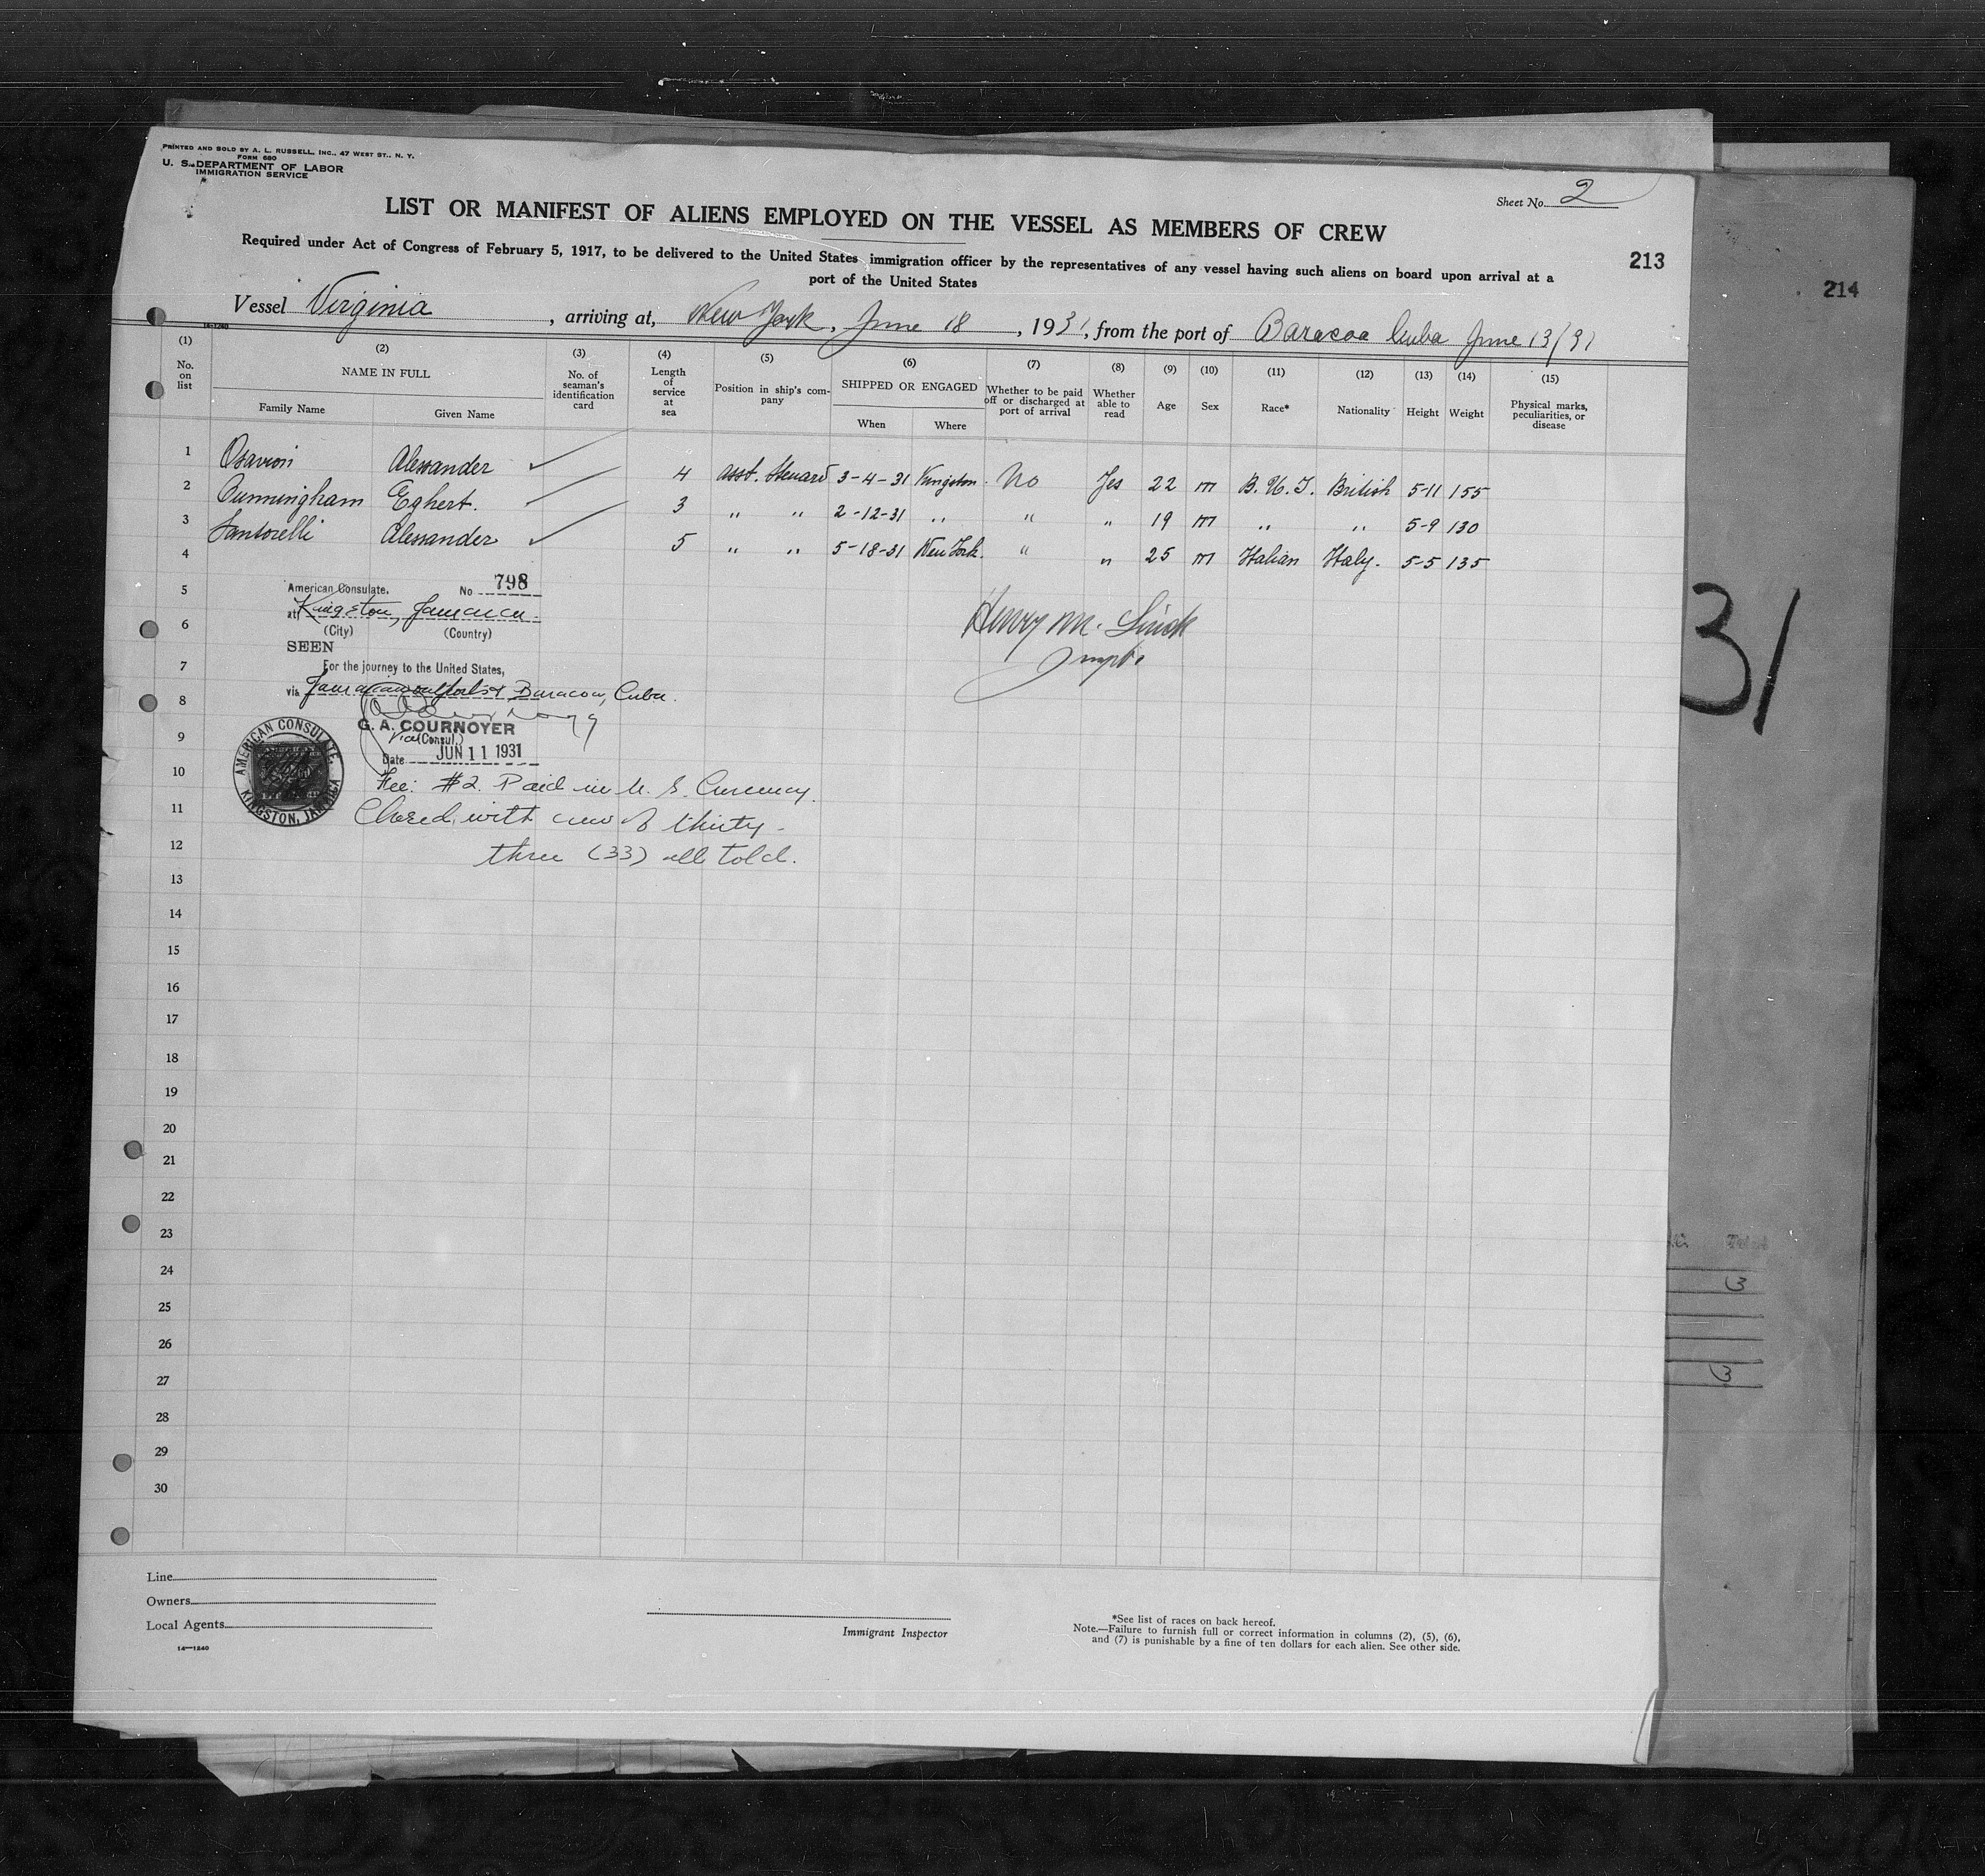 PRINTED AND SOLD BY A. L. RUSSELL, INC., 47 WEST ST., N. Y.
FORM 680
U. S. DEPARTMENT OF LABOR
IMMIGRATION SERVICE
Sheet No. 2
LIST OR MANIFEST OF ALIENS EMPLOYED ON THE VESSEL AS MEMBERS OF CREW
213
214
Required under Act of Congress of February 5, 1917, to be delivered to the United States immigration officer by the representatives of any vessel having such aliens on board upon arrival at a
port of the United States
Vessel Virginia, arriving at, New York, June 18, 1931, from the port of Baracoa Cuba June 13/31
14-1240
(1) (2) (3) (4) (5) (6) (7) (8) (9) (10) (11) (12) (13) (14) (15)
No. on list
NAME IN FULL
Family Name Given Name
No. of seaman's identification card
Length of service at sea
Position in ship's company
SHIPPED OR ENGAGED
When Where
Whether to be paid off or discharged at port of arrival
Whether able to read
Age
Sex
Race*
Nationality
Height
Weight
Physical marks, peculiarities, or disease
1 Alessander 4 asst. Steward 3-4-31 Kingston No Yes 22 m British 5-11 155
2 Cunningham Egbert. 3 " " 2-12-31 " " " 19 m " " 5-9 130
3 Santorelli Alessander 5 " " 5-18-31 New York. " " 25 m Italian Italy. 5-5 135
4
5
6
7
8
9
10
11
12
13
14
15
16
17
18
19
20
21
22
23
24
25
26
27
28
29
30
American Consulate. No 798
at Kingston, Jamaica.
(City) (Country)
SEEN
For the journey to the United States,
via Baracoa, Cuba.
G. A. COURNOYER
Vice (Consul)
Date JUN 11 1931
AMERICAN CONSULATE, KINGSTON, JAMAICA
Fee: #2. Paid in U. S. Currency.
Closed with crew of thirty-
three (33) all told.
Henry M.
31
3
3
Line
Owners
Local Agents
14—1240
Immigrant Inspector
*See list of races on back hereof.
Note.—Failure to furnish full or correct information in columns (2), (5), (6),
and (7) is punishable by a fine of ten dollars for each alien. See other side.